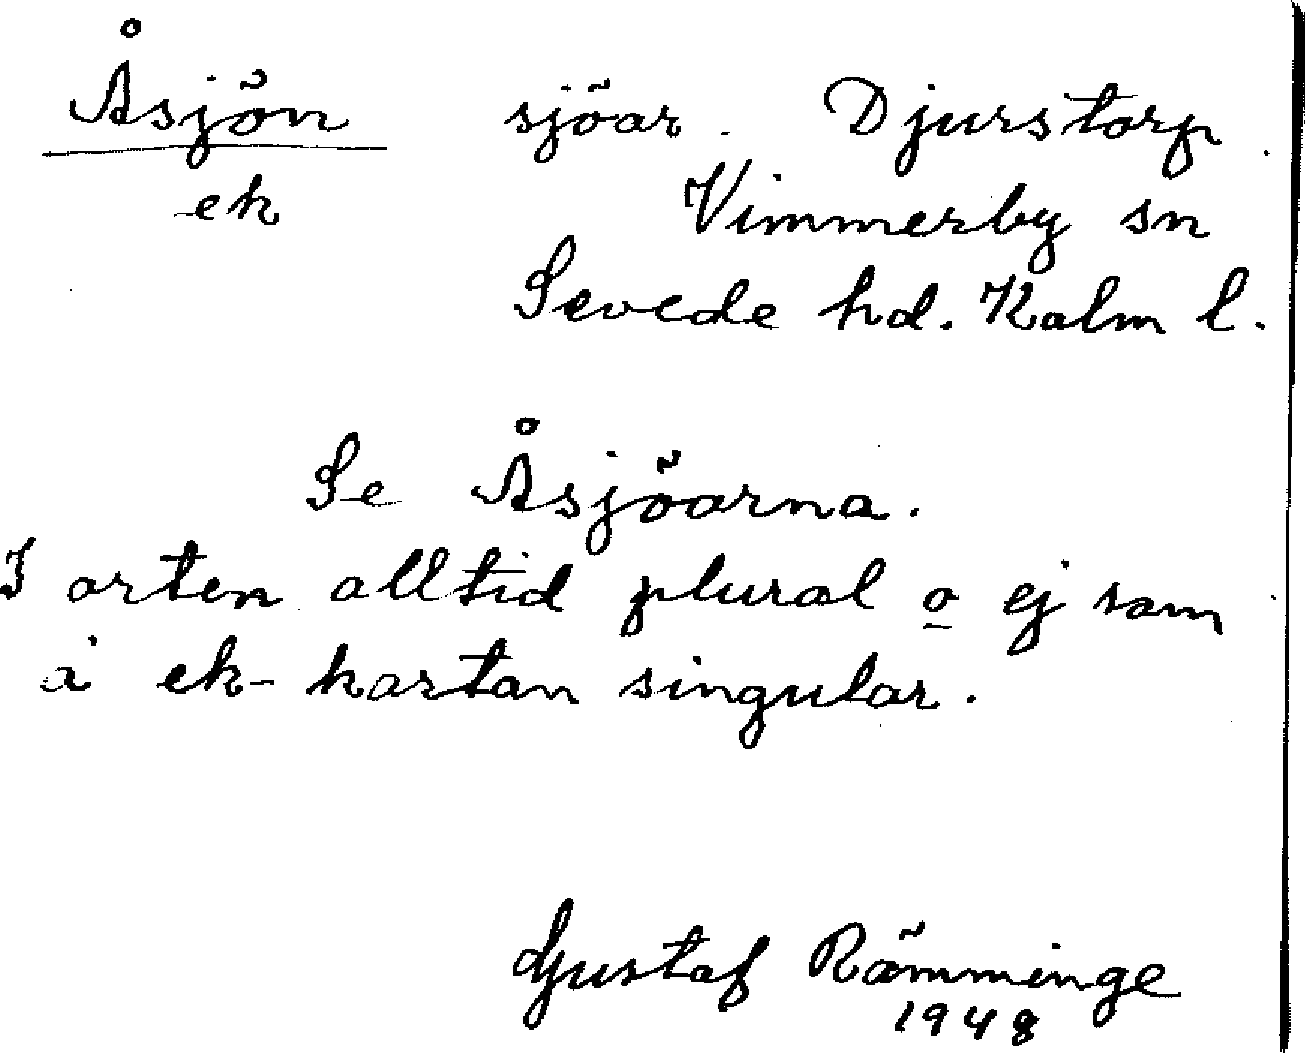 Åsjön sjöar. Djurstorp.
ek Vimmerby sn
Sevede hd. Kalm l.
Se Åsjöarna.
I orten alltid plural o ej som
å ek-kartan singular.
Gustaf Rämminge
1948